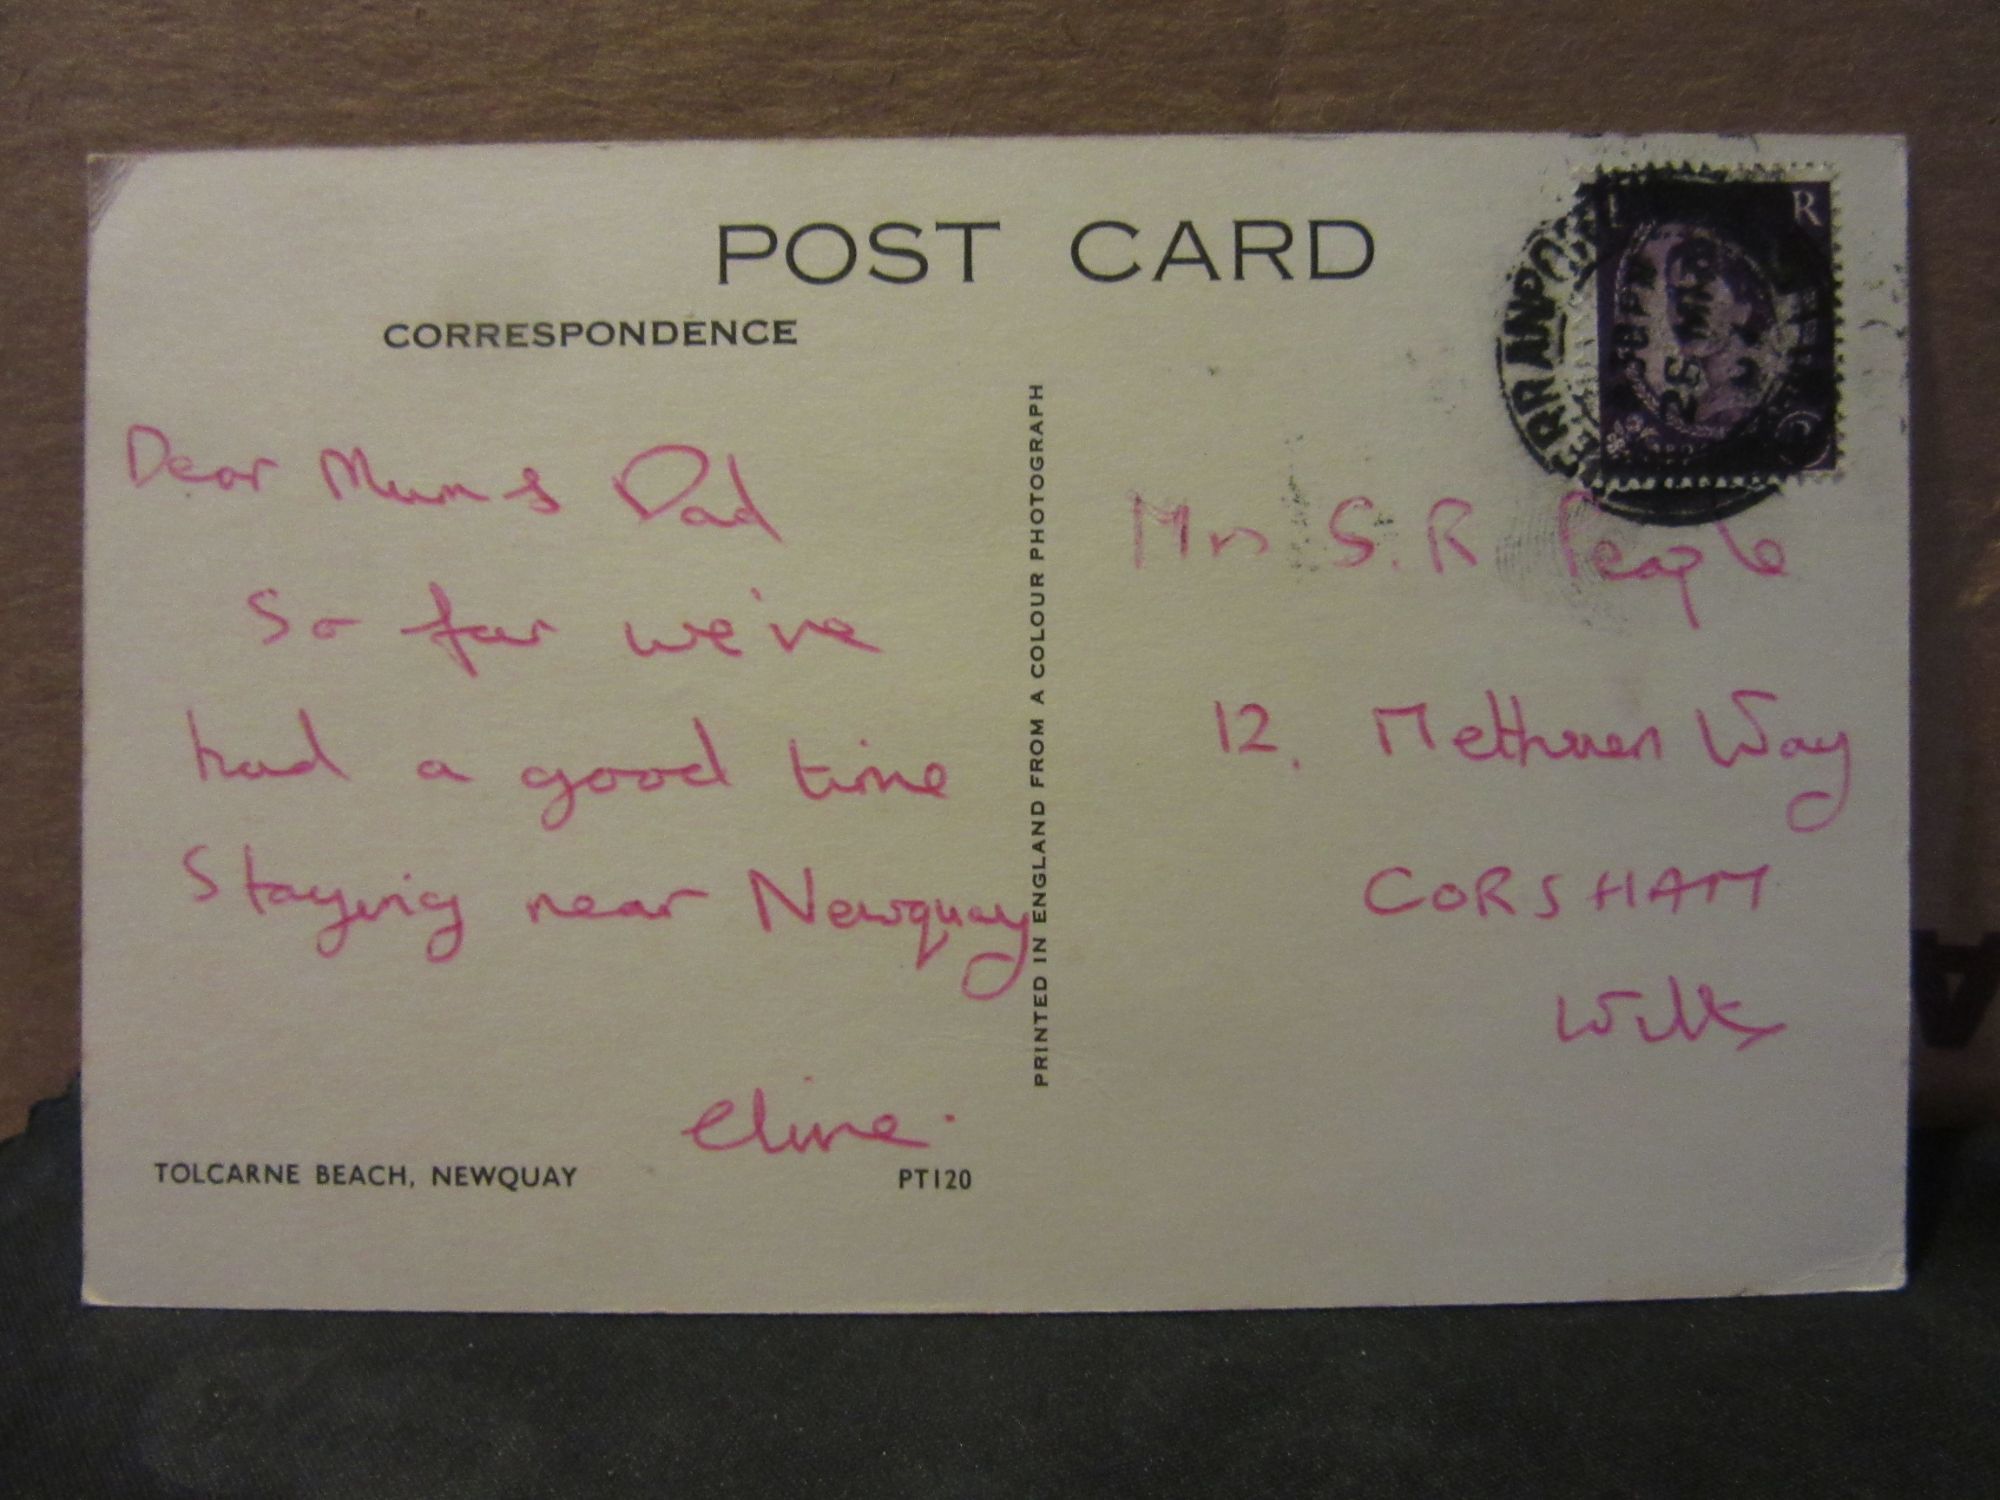 POST CARD
CORRESPONDENCE
Dear Mum & Dad
So far we've
had a good time
Staying near Newquay
TOLCARNE BEACH, NEWQUAY
PT120
PRINTED IN ENGLAND FROM A COLOUR PHOTOGRAPH
R
Mrs S. R
12. Methuen Way
CORSHAM
Wilts